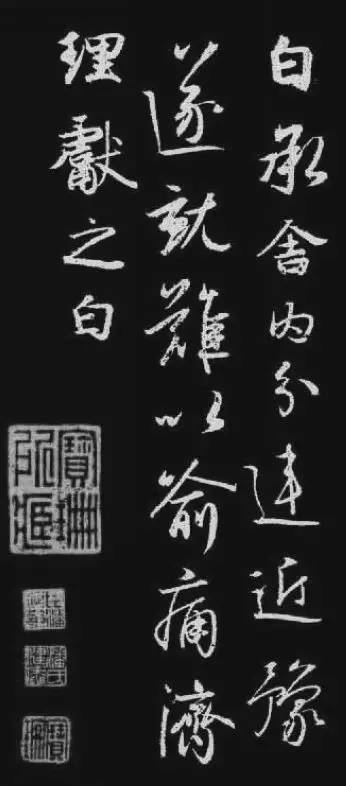 白承舍內分違近豫
遂就難以俞痛濟
理獻之白